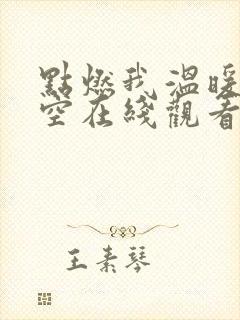 點燃我 溫暖
空在綫觀看
王素琴